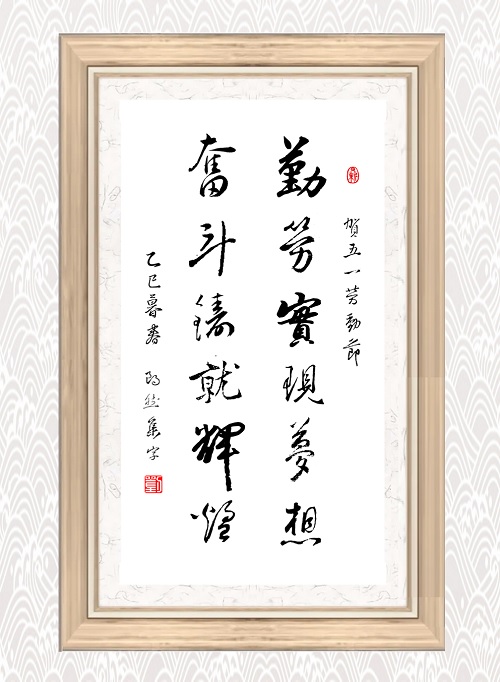 賀五一勞動節
勤勞實現夢想
奮斗鑄就輝煌
乙巳暮春 集字